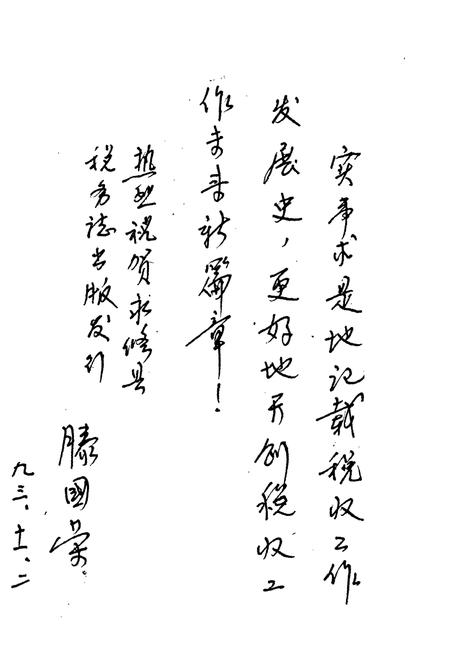 实事求是地记载税收工作
发展史，更好地开创税收工
作未来新篇章！
热烈祝贺永修县
税务志出版发行
滕國荣
九三、十一、二